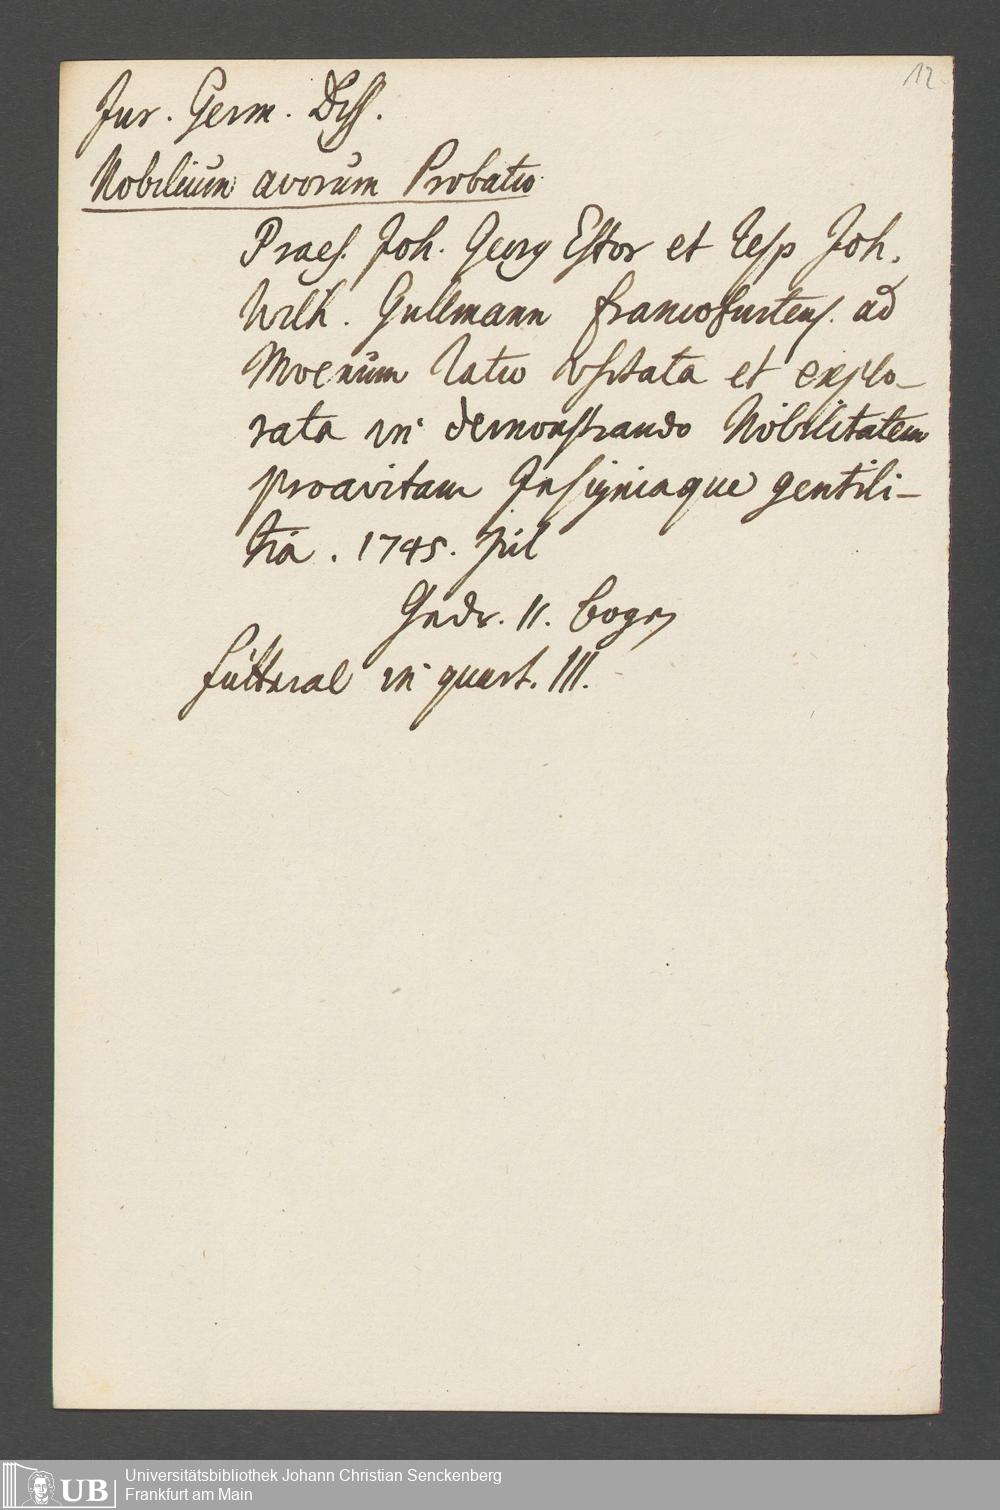 12.
Jur. Germ. Diss.
Nobilium avorum Probatio
Praes. Joh. Georg Estor et Resp Joh.
Wilh. Gullmann Francofurtens. ad
Moenum Ratio usitata et explo-
rata in demonstrando Nobilitatem
proavitam Insigniaque gentili-
tia. 1745. Jul
Gedr. 11. bogen
Futteral in quart. III.
UB
Universitätsbibliothek Johann Christian Senckenberg
Frankfurt am Main